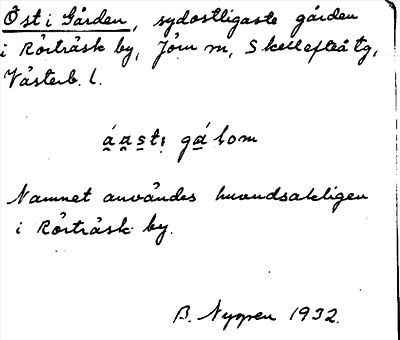 Öst i Gården, sydostligaste gården
i Rörträsk by, Jörn m, Skellefteå tg,
Västerb. l.
Namnet användes huvudsakligen
i Rörträsk by.
B. Nygren 1932.